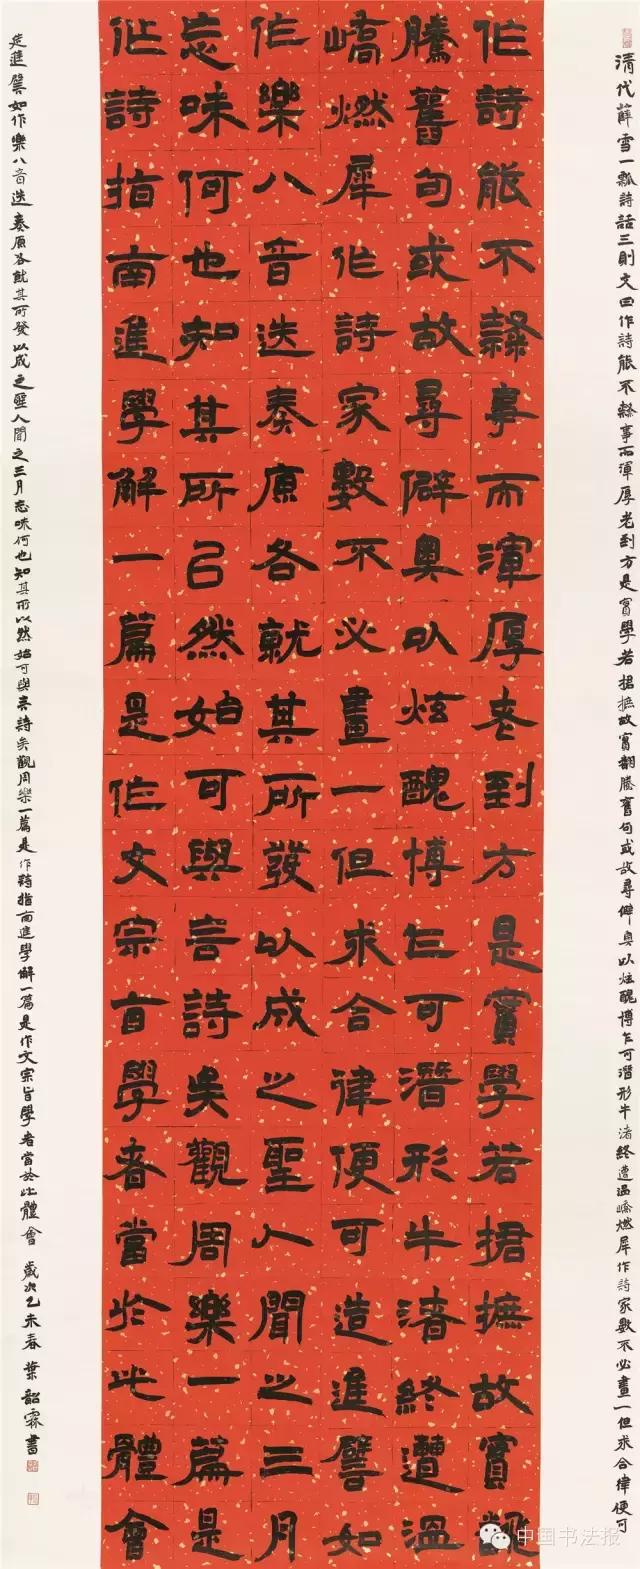 清代薛雪一瓢詩話三則文曰作詩能不隸事而渾厚老到方是實學若捃摭故實翻騰舊句或故尋僻奧以炫醜博乍可潛形牛渚終遭温嶠燃犀作詩家數不必畫一但求合律便可
作詩能不隸事而渾厚老到方是實學若捃摭故實翻
騰舊句或故尋僻奧以炫醜博乍可潛形牛渚終遭温
嶠燃犀作詩家數不必畫一但求合律便可造進譬如
作樂八音迭奏原各就其所發以成之聖人聞之三月
忘味何也知其所以然始可與言詩矣觀周樂一篇是
作詩指南進學解一篇是作文宗旨學者當於此體會
造進譬如作樂八音迭奏原各就其所發以成之聖人聞之三月忘味何也知其所以然始可與言詩矣觀周樂一篇是作詩指南進學解一篇是作文宗旨學者當於此體會 歲次乙未春葉韶霖書
中国书法报